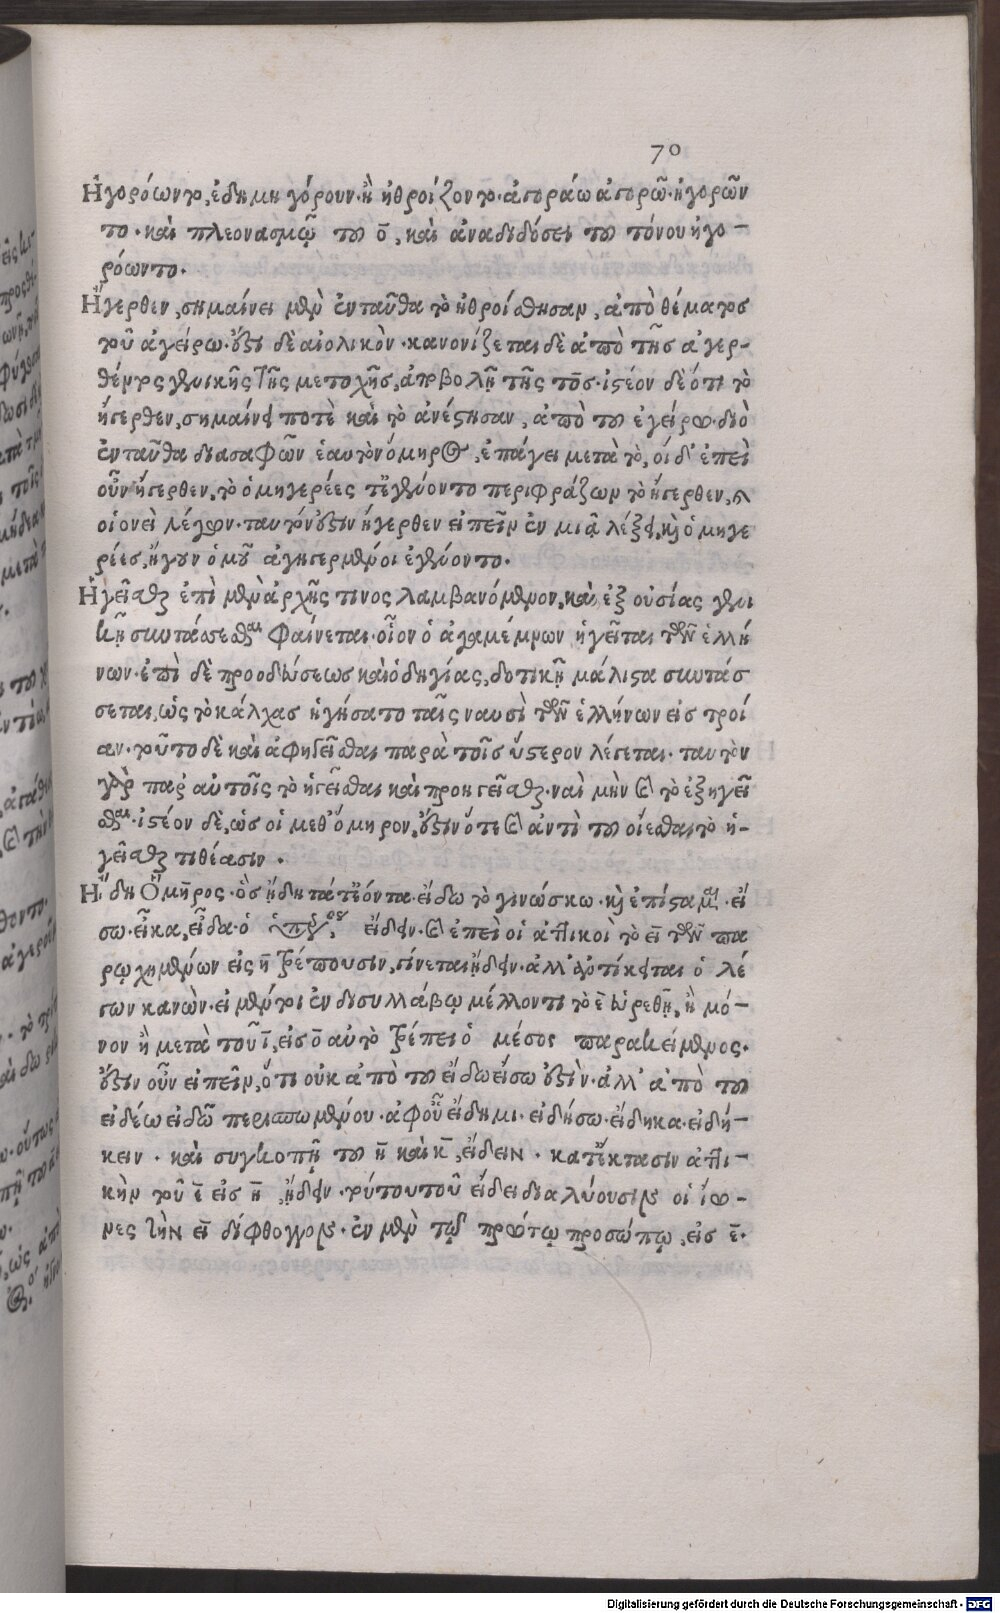 70
Ἠγορόωντο, ἐδημηγόρουν· ἢ ἠθροίζοντο· ἀγοράω ἀγορῶ· ἠγορῶν
το· καὶ πλεονασμῷ τοῦ ο̄, καὶ ἀναδιδόσει τοῦ τόνου ἠγο-
ρόωντο.
Ἤγερθεν, σημαίνει μὲν ἐνταῦθα τὸ ἠθροίσθησαν, ἀπὸ θέματος
τοῦ ἀγείρω· ὅστι δὲ αἰολικὸν· κανονίζεται δὲ ἀπὸ τῆς ἀγερ-
θέντος γενικῆς τῆς μετοχῆς, ἀποβολῇ τῆς τος· ἰστέον δὲ ὅτι τὸ
ἤγερθεν, σημαίνει ποτὲ καὶ τὸ ἀνέστησαν, ἀπὸ τοῦ ἐγείρω· διὸ
ἐνταῦθα διασαφῶν ἑαυτὸν ὅμηρος, ἐπάγει μετὰ τὸ, οἱ δ' ἐπεὶ
οὖν ἤγερθεν, τὸ ὁμηγερέες τ' ἐγένοντο περιφράζων τὸ ἤγερθεν,
οἱονεὶ λέγων· ταυτόν ἐστιν ἤγερθεν εἰπεῖν ἐν μιᾷ λέξει, καὶ ὁμηγε
ρέες, ἤγουν ὁμοῦ ἀγηγερμένοι ἐγένοντο.
Ἡγεῖσθαι ἐπὶ μὲν ἀρχῆς τινος λαμβανόμενον, καὶ ἐξουσίας γενι
κῇ συντάσσεσθαι φαίνεται· οἷον ὁ ἀγαμέμνων ἡγεῖται τῶν ἑλλή
νων· ἐπὶ δὲ προοδεύσεως καὶ ὁδηγίας, δοτικῇ μάλιστα συντάσ
σεται, ὡς τὸ κάλχας ἡγήσατο ταῖς ναυσὶ τῶν ἑλλήνων εἰς τροί
αν· τοῦτο δὲ καὶ ἀφηγεῖσθαι παρὰ τοῖς ὕστερον λέγεται· ταυτὸν
γὰρ παρ' αὐτοῖς τὸ ἡγεῖσθαι καὶ προηγεῖσθαι· ναὶ μὴν καὶ τὸ ἐξηγεῖ
σθαι· ἰστέον δὲ, ὡς οἱ μεθ' ὅμηρον, ἔστιν ὅτε καὶ ἀντὶ τοῦ οἴεσθαι τὸ ἡ-
γεῖσθαι τιθέασιν.
Ἤδη Ὅμηρος· ὃς ἤδη τά τ' ἐόντα· εἴδω τὸ γινώσκω· καὶ ἐπίσταμαι· εἴ
σω· εἶκα, εἶδα· ὁ εἴδειν· καὶ ἐπεὶ οἱ ἀττικοὶ τὸ ει τῶν πα
ρῳχημένων εἰς η τρέπουσιν, γίνεται ᾔδειν· ἀλλ' ἀντίκειται ὁ λέ
γων κανών· εἰ μέν τοι ἐν δισυλλάβῳ μέλλοντι τὸ ε εὑρεθῇ, ἢ μό-
νον ἢ μετὰ τοῦ ι, εἰς ο αὐτὸ τρέπει ὁ μέσος παρακείμενος.
ἔστιν οὖν εἰπεῖν, ὅτι οὐκ ἀπὸ τοῦ εἴδω εἴσω ἐστὶν· ἀλλ' ἀπὸ τοῦ
εἰδέω εἰδῶ περισπωμένου· ἀφ' οὗ εἴδημι· εἰδήσω· εἴδηκα· εἰδή-
κειν· καὶ συγκοπῇ τοῦ η καὶ κ, εἴδειν· κατ' ἔκτασιν ἀττι
κὴν τοῦ ε εἰς η, ᾔδειν· τούτου τοῦ εἴδει διαλύουσιν οἱ ἴω-
νες τὴν ει δίφθογγον· ἐν μὲν τῷ πρώτῳ προσώπῳ, εἰς ε.
Digitalisierung gefördert durch die Deutsche Forschungsgemeinschaft - DFG